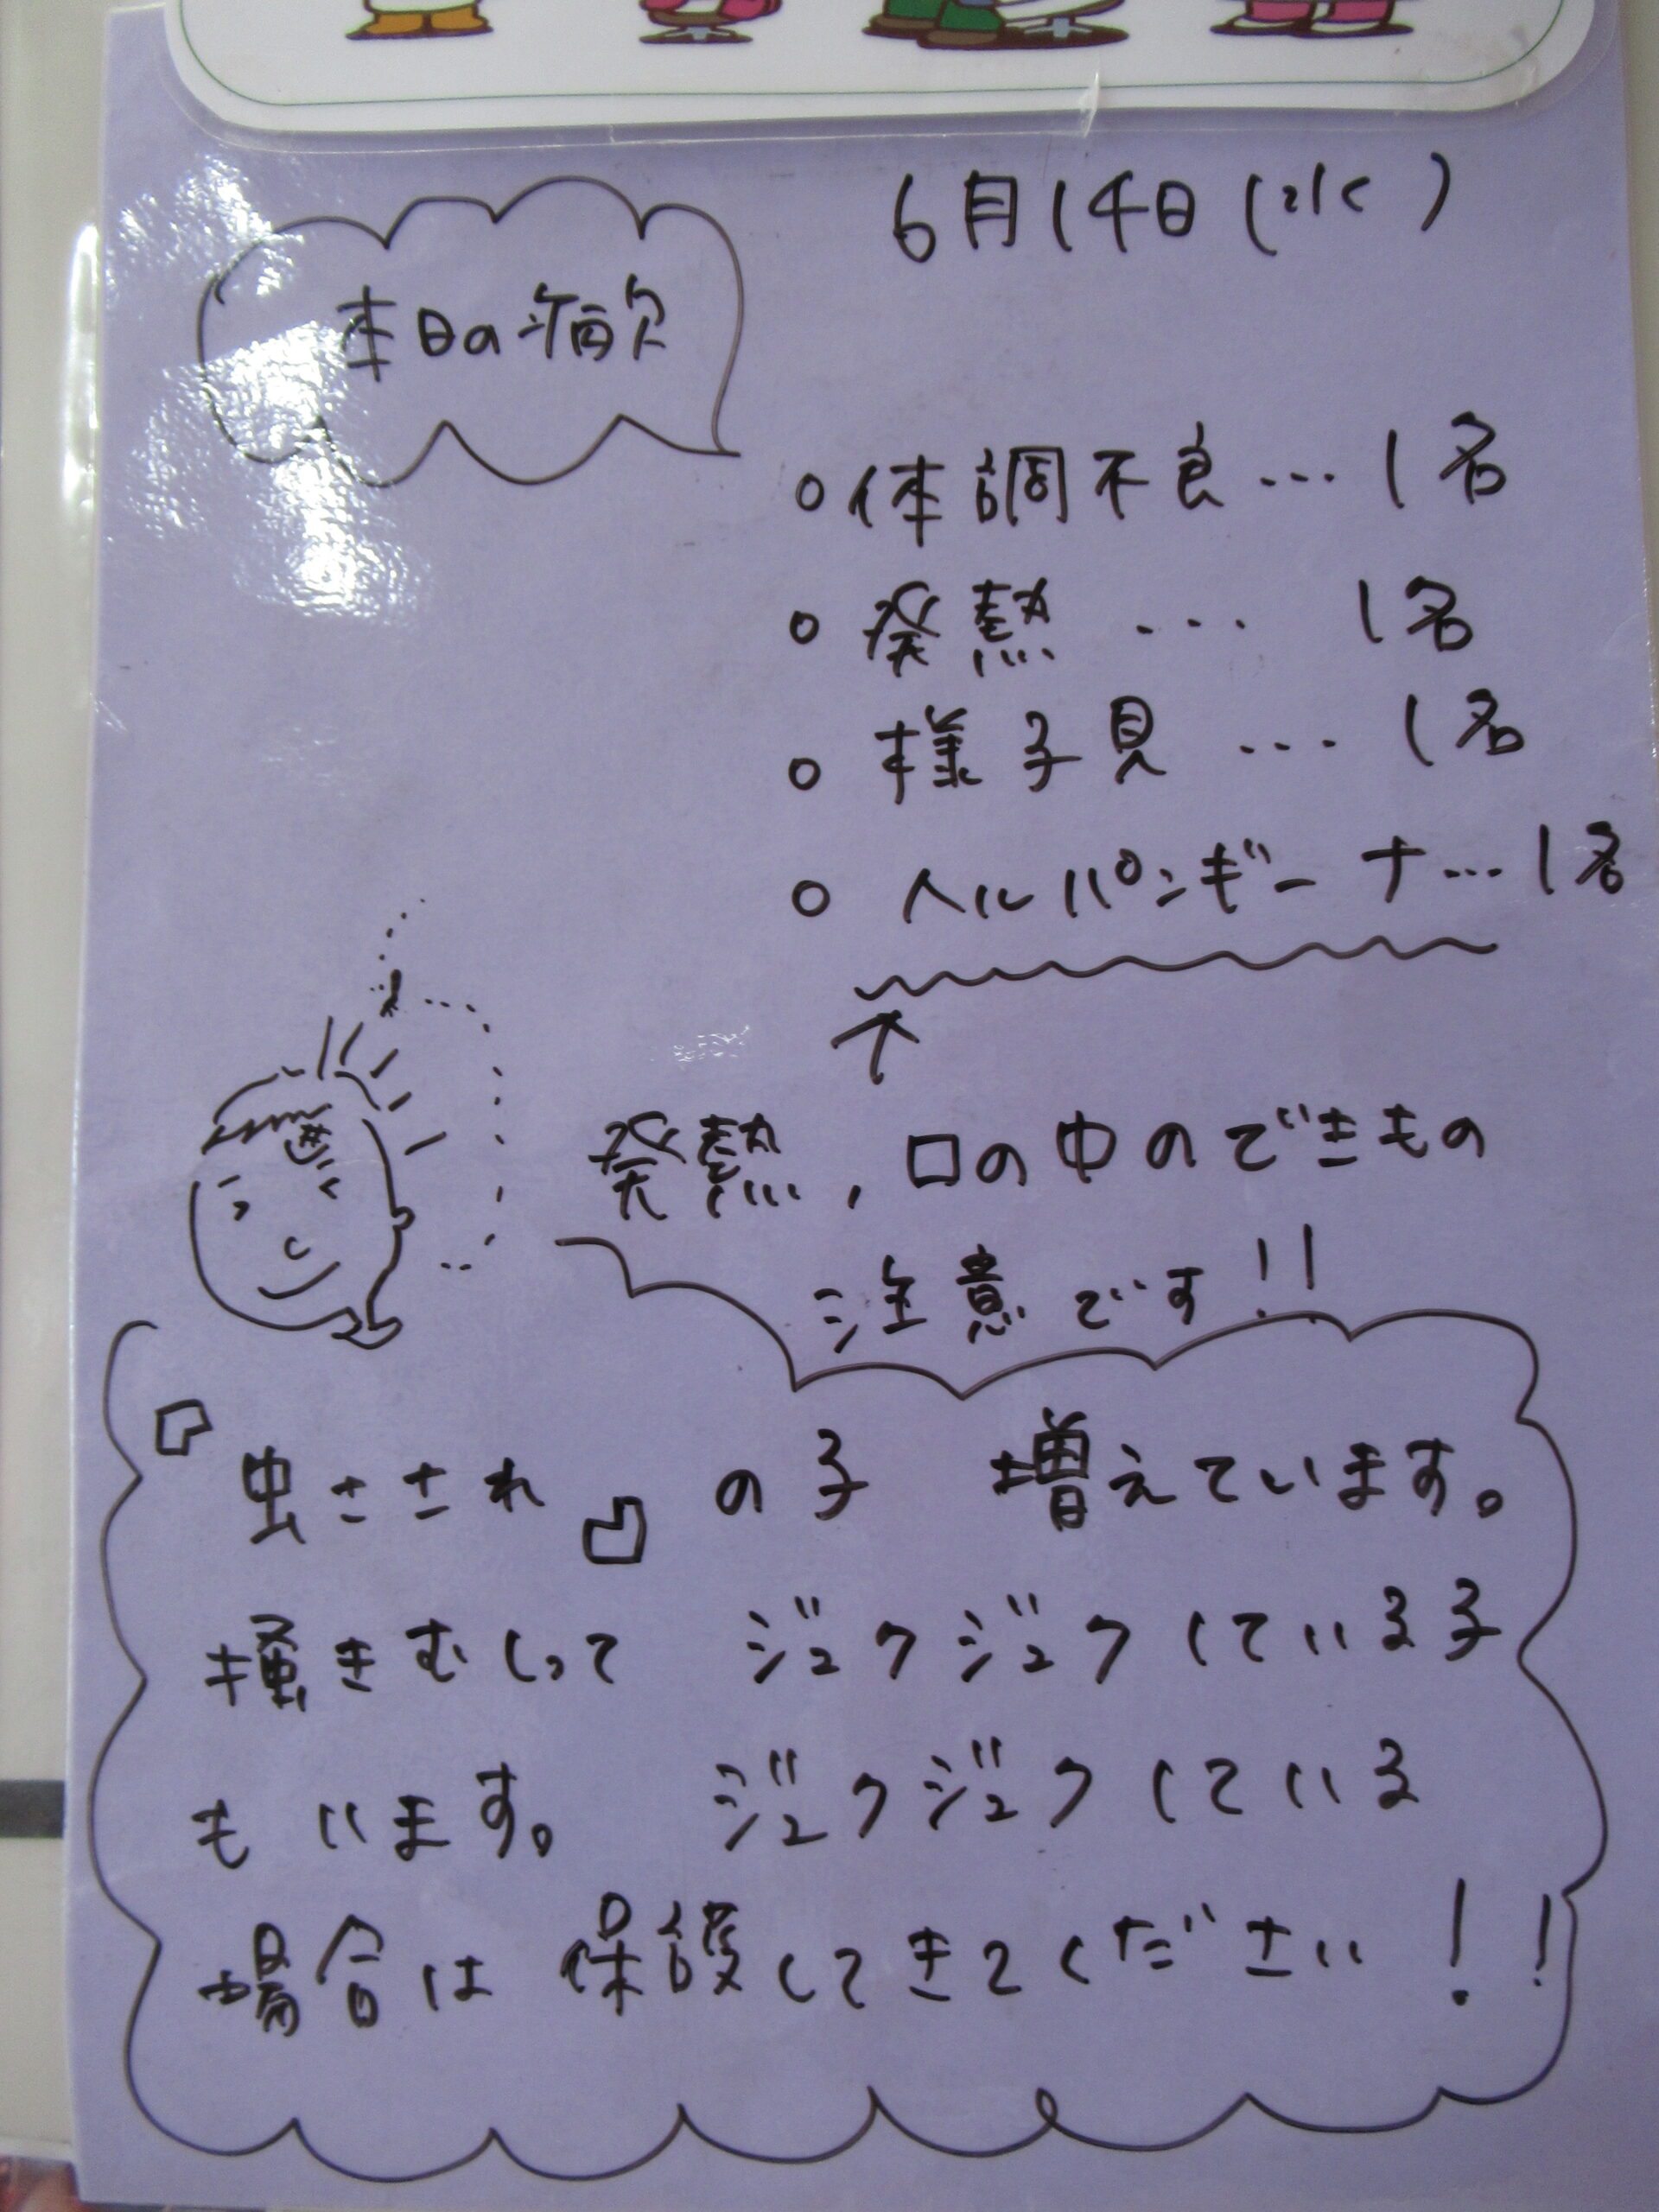 6月14日(水)
本日の病欠
○体調不良…1名
○発熱…1名
○様子見…1名
○ヘルパンギーナ…1名
↑
発熱,口の中のできもの
注意です!!
『虫さされ』の子 増えています。
掻きむしって ジュクジュクしている子
もいます。 ジュクジュクしている
場合は保護してきてください!!